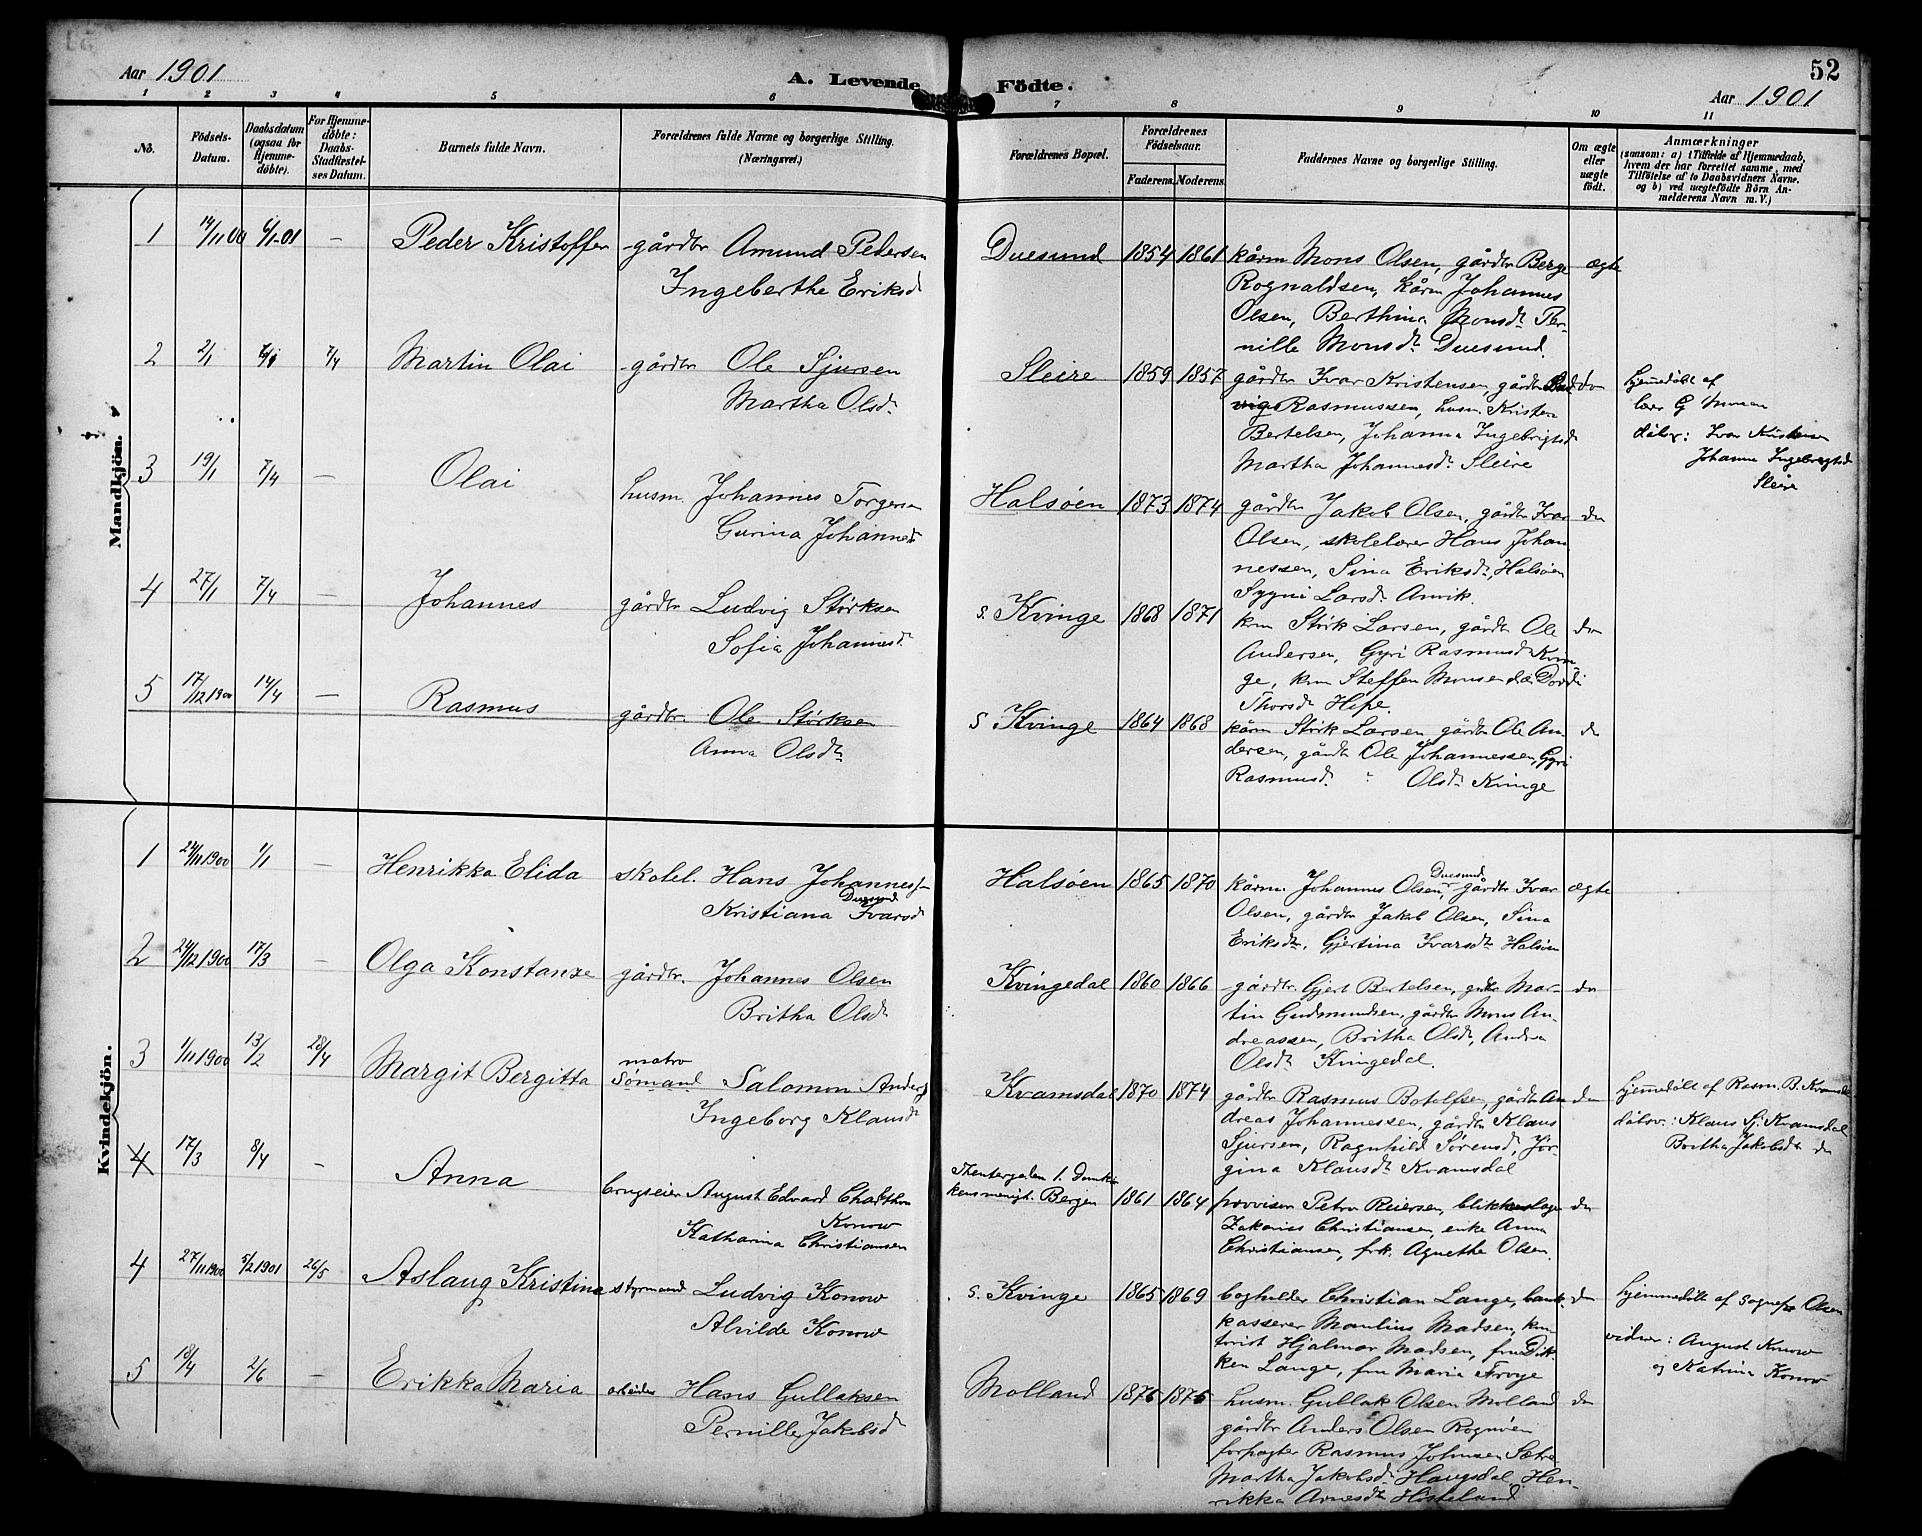 Aar 1901
A. Levende Födte.
52
Aar 1901
1 2 3 4 5 6 7 8 9 10 11
No.
Födsels-Datum.
Daabsdatum (ogsaa for Hjemme-döbte).
For Hjemme-döbte: Daabs-Stadfæstel-ses Datum.
Barnets fulde Navn.
Forældrenes fulde Navne og borgerlige Stilling. (Næringsvei.)
Forældrenes Bopæl.
Forældrenes Födselsaar.
Faderens. Moderens.
Faddernes Navne og borgerlige Stilling.
Om ægte eller uægte födt.
Anmærkninger
(saasom: a) i Tilfælde af Hjemmedaab, hvem der har forrettet samme, med Tilföielse af to Daabsvidners Navne. og b) ved uægtefödte Börn Anmelderens Navn m. V.)
Mandkjön.
1 14/11 00 6/1-01 — Peder Kristoffer gårdbr Amund Pedersen
Ingeberthe Eriksd
Duesund 1854 1861 kårm Mons Olsen, gårdbr Berge ægte
Rognaldsen, kårm Johannes
Olsen, Berthina Monsdt Per-
nille Monsdt Duesund.
2 2/1 7/4 Martin Olai gårdbr Ole Sjursen
Martha Olsdt
Sleire 1859 1857 gårdbr Ivar Kristensen, gårdbr do
Rasmussen, husm. Kristen
Bertelsen, Johanna Ingebrigtsd
Martha Johannesdt Sleire
Hjemmedöbt af
lærer G Monsen
dåbsv: Ivar Kristensen
Johanna Ingebrigtsd
Sleire
3 19/1 7/4 — Olai husm. Johannes Torgersen
Gurina Johannesd
Halsöen 1873 1874 gårdbr Jakob Olsen, gårdbr Ivar do
Olsen, skolelærer Hans Johan
nessen, Sina Eriksdt, Halsöen
Sygni Larsdt Anvik.
4 27/1 7/4 — Johannes gårdbr Ludvig Störksen
Sofia Johannesd
S. Kvinge 1868 1871 krm Störk Larsen, gårdbr Ole do
Andersen, Gyri Rasmusdt Kvin
ge, krm Steffen Monsen
Thorsdt Hope.
5 17/12 1900 14/4 — Rasmus gårdbr. Ole Störksen
Anna Olsdt
S Kvinge 1864 1868 kårm Störk Larsen gårdbr Ole An do
dersen, gårdb Ole Johannessen, Gyri
Rasmusd. " Olsdt Kvinge
Kvindekjön.
1 24/11 1900 1/1 — Henrikka Elida skolel. Hans Johannes
Duesund
Kristiana Ivarsd
Duesund
Halsöen 1865 1870 kårm. Johannes Olsen, gårdbr Ivar ægte
Olsen, gårdbr Jakob Olsen, Sina
Eriksdt, Gjertina Ivarsdt Halsöen
2 24/12 1900 17/3 — Olga Konstanze gårdbr. Johannes Olsen
Britha Olsd
Kvingedal 1860 1866 gårdbr. Gjert Bertelsen, gårdbr Mar- do
tin Gudmundsen, gårdbr Mons An-
dreassen, Britha Olsdt, Andrea
Olsdt Kvingedal.
3 1/11 1900 13/2 28/4 Margit Bergitta matro
Sömand Salomon Anders
Ingeborg Klausd
Kvamsdal 1870 1874 gårdbr Rasmus Botolfsen, gårdbr An do
dreas Johannessen, gårdbr Klaus
Sjursen, Ragnhild Sörensd, Jör-
gina Klausdt Kvamsdal
Hjemmedöbt af Rasm. B. Kvamsdal
dåbsv.: Klaus Sj. Kvamsdal
Britha Jakobsdt do
4 17/3 8/4 — Anna brugseier August Edvard
Konow
Katharina Christiansen
1. Domkir
kensmenigh. Bergen 1861 1864 provisor Petra Reiersen, blikkenslager do
Zakarias Christiansen, enke Anna
Christiansen, frk. Agnethe Olsen.
4 27/11 1900 5/2 1901 26/5 Aslaug Kristina styrmand Ludvig Konow
Alvilde Konow
S. Kvinge 1865 1869 bogholder Christian Lange, bank- do
kasserer Maulius Madsen, kon
torist Hjalmar Madsen, fru Dik-
ken Lange, fru Maria Troye
Hjemmedöbt af Sognepr Olsen
vidner: August Konow
og Katrina Konow
5 18/4 2/6 — Erikka Maria arbeider Hans Gullaksen
Pernille Jakobsd
Molland 1876 1876 husm. Gullak Olsen Molland do
gårdbr Anders Olsen Rognöen
forpagter Rasmus Johnsen Sætre
Martha Jakobsdt Haugsdal, Hen-
rikka Arnesdt Hosteland